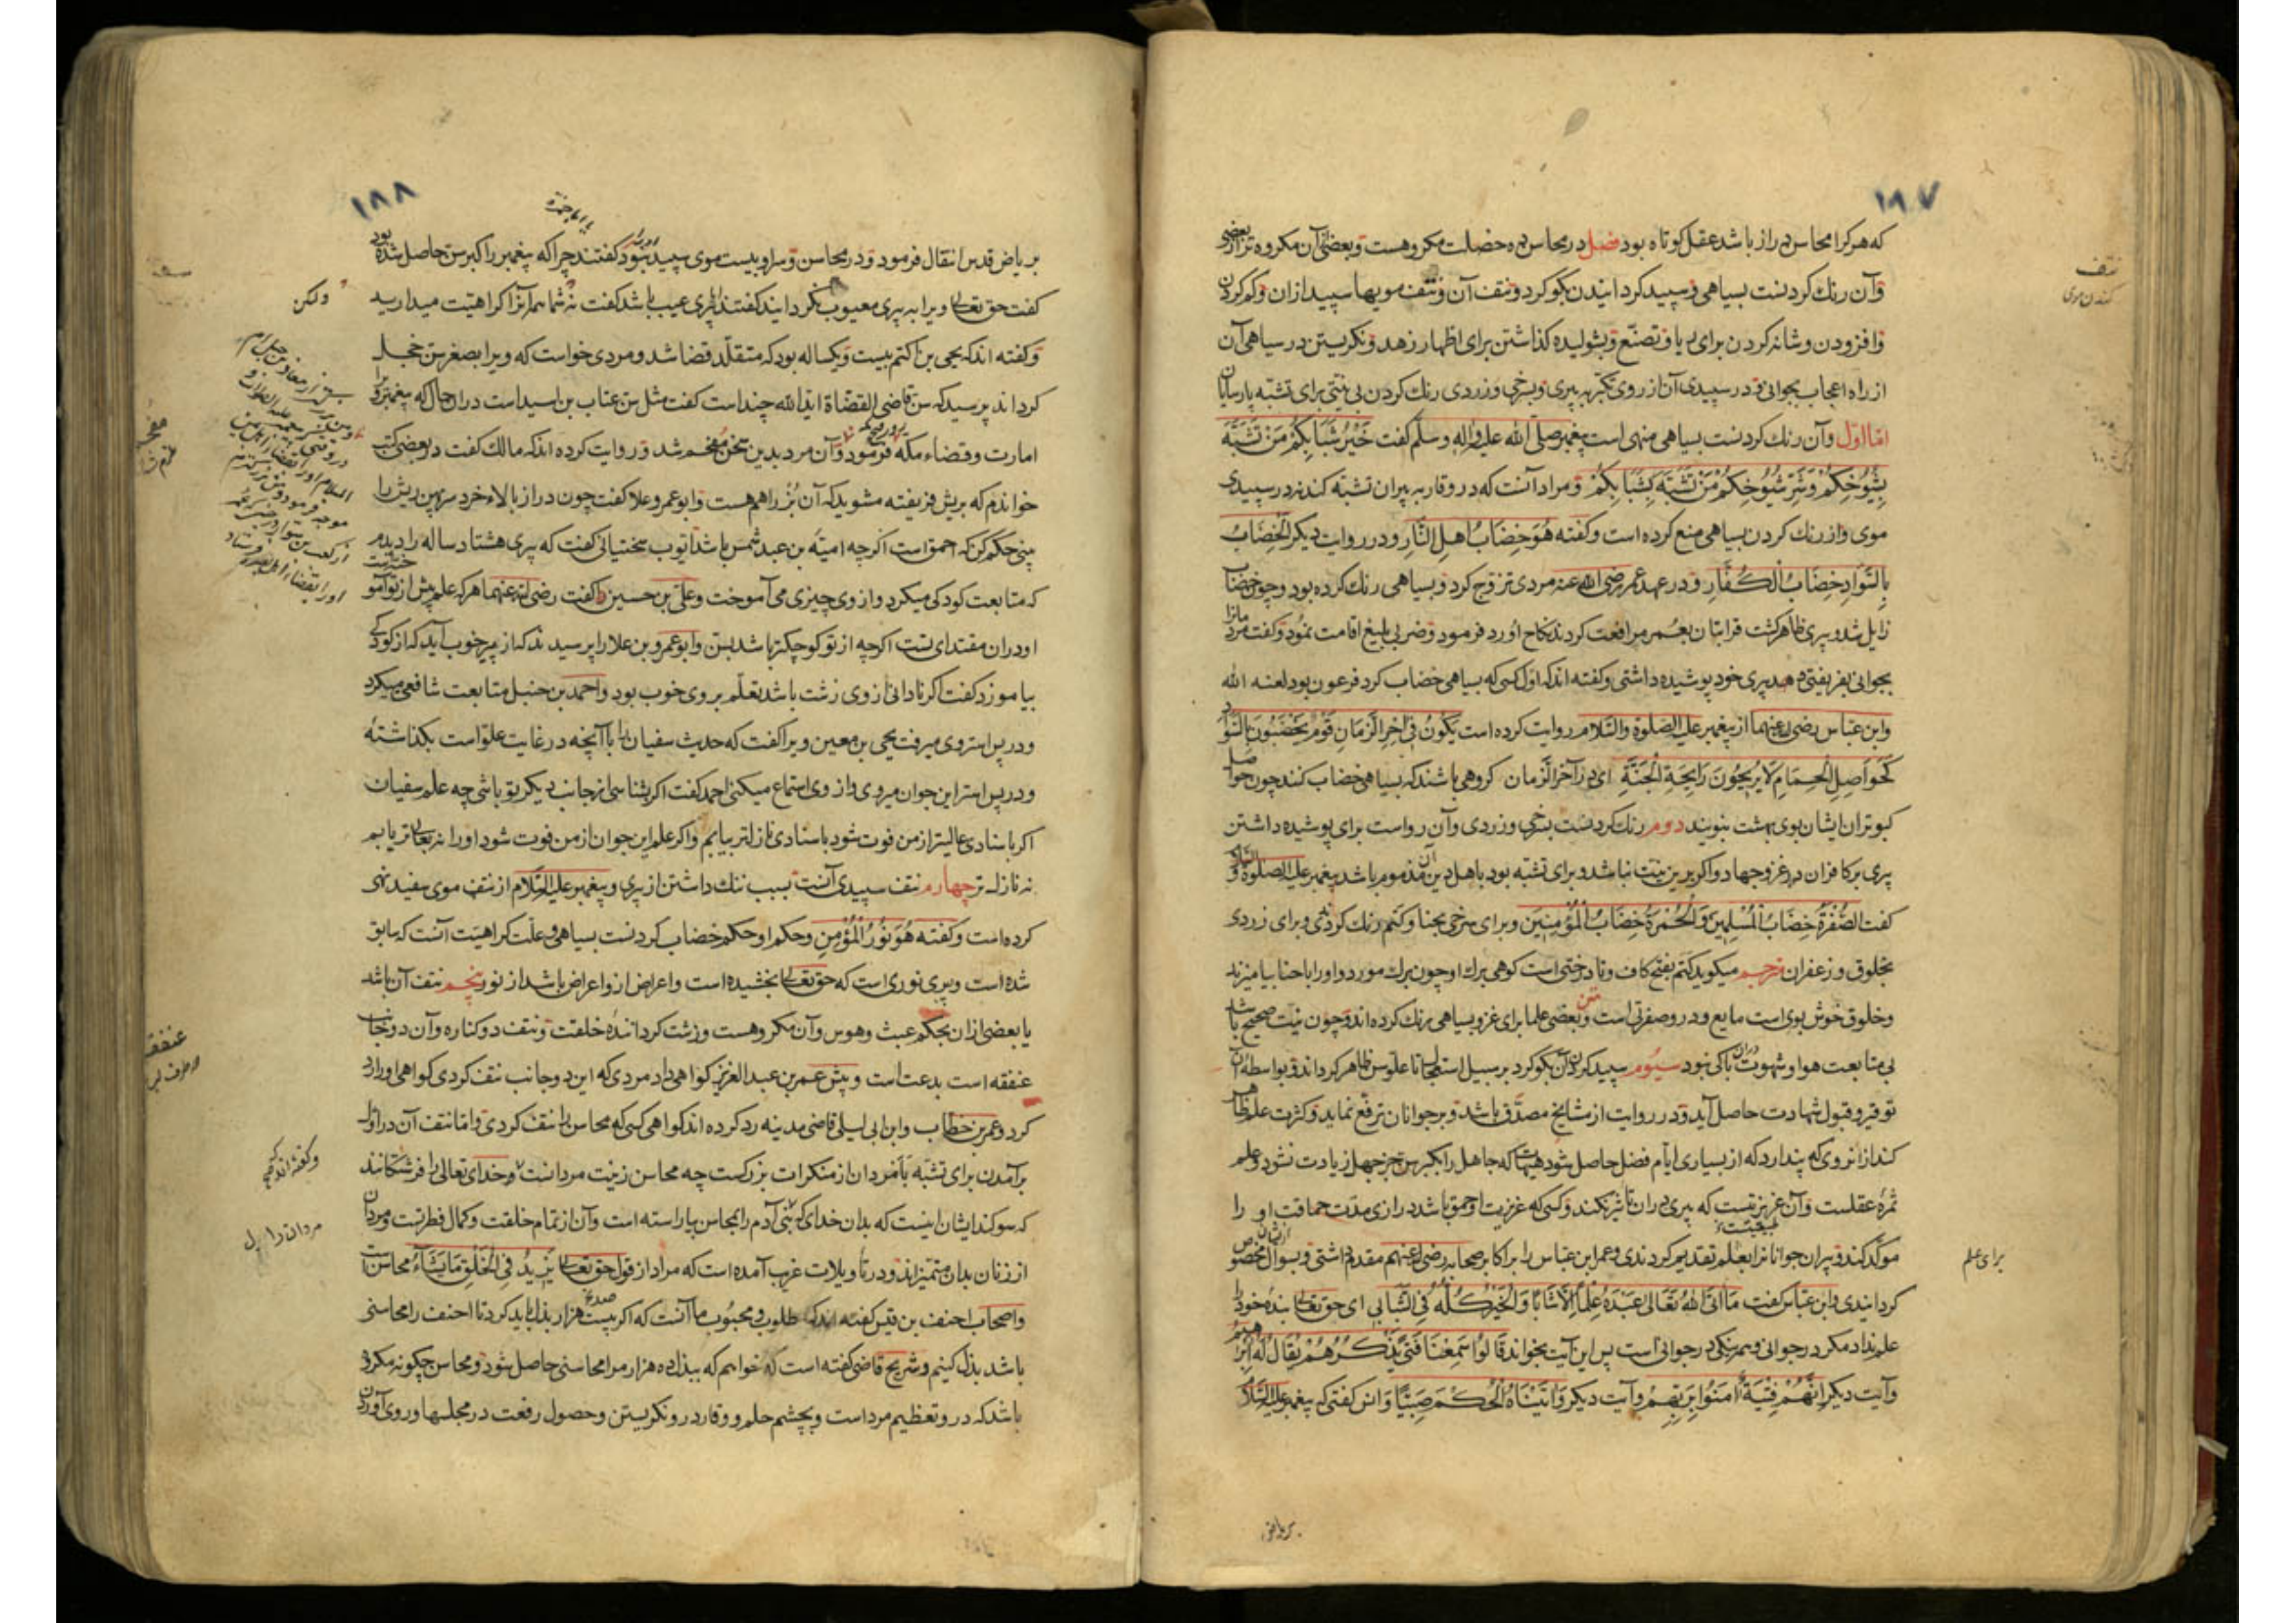 ۱۸۷
که هرکرا محاسن دراز باشد عقل کوتاه بود فصل در محاسن ده خصلت مکروهست و بعضی آن مکروه تر از بعضی
وآن رنك کردنست بسیاهی و سپید کردانیدن بکوکرد و نتف آن و نتف مویها سپید ازان و کم کردن
وافزودن و شانه کردن برای ریا و تصنّع و بشولیده کذاشتن برای اظهار زهد و نکریستن در سیاهی آن
از راه اعجاب بجوانی و در سپیدی آن از روی تکبّر به پیری و بسرخی و زردی رنك کردن بی نیّتی برای تشبّه پارسایان
امّا اوّل وآن رنك کردنست بسیاهی منهی است پیغمبر صلّی الله علیه واله وسلّم کفت خَیْرُ شَبَابِکُمْ مَنْ تَشَبَّهَ
بِشُیُوخِکُمْ وَشَرُّ شُیُوخِکُمْ مَنْ تَشَبَّهَ بِشَبَابِکُمْ و مراد آنست که در وقار به پیران تشبّه کنند نه در سپیدی
موی و از رنك کردن بسیاهی منع کرده است وکفته هُوَ خِضَابُ اهلِ النَّارِ و در روایت دیکر الْخِضَابُ
بِالسَّوَادِ خِضَابُ الْکُفَّارِ و در عهد عمر رضی الله عنه مردی تزوّج کرد و بسیاهی رنك کرده بود و چون خضاب
زایل شد و پیری ظاهر کشت قرابتان بعمر مرافعت کردند نکاح او رد فرمود و ضربی بلیغ اقامت نمود و کفت مردمانرا
بجوانی بفریفتی و پیری خود پوشیده داشتی وکفته اندکه اوّل کسی که بسیاهی خضاب کرد فرعون بود لعنه الله
وابن عبّاس رضی عنهما از پیغمبر علیه الصلوة والسّلام روایت کرده است یَکُونُ فِی اخِرِ الزَّمَانِ قَوْمٌ یَخْضِبُونَ بِالسَّوَادِ
کَحَوَاصِلِ الْحَمَامِ لَا یُرِیحُونَ رَایِحَةَ الْجَنَّةِ ای در آخر الزّمان کروهی باشند که بسیاهی خضاب کنند چون حواصل
کبوتران ایشان بوی بهشت نبویند دوم رنك کردنست بسرخی وزردی وآن رواست برای پوشیده داشتن
پیری بر کافران در غزو و جهاد واکر برین نیّت نباشد و برای تشبّه بود باهل دین آن مذموم باشد پیغمبر علیه الصلوة والسّلام
کفت الصُّفْرَةُ خِضَابُ الْمُسْلِمِینَ وَالْحُمْرَةُ خِضَابُ الْمُؤْمِنِینَ وبرای سرخی بحنا وکتم رنك کردندی وبرای زردی
بخلوق و زعفران مترجم میکوید کتم بفتح کاف وتا درختی است کوهی برك او چون برك مورد و او را با حنا بیامیزند
وخلوق خوش بوی است مایع و درو صفرتی است متن و بعضی علما برای غزو بسیاهی رنك کرده اند و چون نیّت صحیح باشد
بی متابعت هوا و شهوت دران باکی نبود سیوم سپید کردن آن بکوکرد بر سبیل استعجال تا علوّ سن ظاهر کرداند و بواسطهٔ آن
توقیر و قبول شهادت حاصل آید و در روایت از مشایخ مصدّق باشد و بر جوانان ترفّع نماید و کثرت علم ظاهر
کند از انروی که پندارد که از بسیاری ایّام فضل حاصل شود هیهات که جاهل را بکبر سن جز جهل زیادت نشود و علم
ثمرهٔ عقلست وآن غریزتیست که پیری دران تاثیر نکند وکسی که غریزت او حمق باشد درازی مدّت حماقت او را
طبیعت
مؤکّد کند و پیران جوانانرا بعلم تقدیم کردندی وعمر ابن عبّاس را بر اکابر صحابه رضی عنهم مقدم داشتی و بسوال ازیشان مخصوص
کردانیدی وابن عبّاس کفت مَا اتَی اللهُ تَعَالَی عَبْدَهُ عِلْماً اِلَّا شَابّاً وَالْخَیْرُ کُلُّهُ فِی الشَّبَابِ ای حق تعالی بندهٔ خود را
علم نداد مکر در جوانی و همه نیکی در جوانی است پس این آیت بخواند قَالُوا سَمِعْنَا فَتًی یَذْکُرُهُمْ یُقَالُ لَهُ اِبْرَهِیمُ
وآیت دیکر اِنَّهُمْ فِتْیَةٌ امَنُوا بِرَبِّهِمْ وآیت دیکر وَاتَیْنَاهُ الْحُکْمَ صَبِیّاً وانس کفتی که پیغمبر علیه السّلام
نتف
کندن موی
برای علم
بریاض
۱۸۸
بریاض قدس انتقال فرمود و در محاسن و سر او بیست موی سپید نبود کفتند چرا که پیغمبر را کبر سن حاصل شده بود
کفت حق تعالی ویرا به پیری معیوب نکردانید کفتند پیری عیب باشد کفت نه شما همه آنرا کراهیّت میدارید
وکفته اندکه یحیی بن اکثم بیست ویکساله بود که متقلّد قضا شد و مردی خواست که ویرا بصغر سن خجل
کرداند پرسید که سن قاضی القضاة ایّدالله چند است کفت مثل سن عتاب بن اسید است دران حال که پیغمبر ویرا
امارت وقضاء مکّه فرمود وآن مرد بدین سخن مفحم شد و روایت کرده اندکه مالك کفت در بعضی کتب
خواندم که بریش فریفته مشوید که آن بُز را هم هست و ابو عمرو علا کفت چون دراز بالاء خرد سر پهن ریش را
بینی حکم کن که احمق است اکرچه امیّه بن عبد شمس باشد ایّوب سختیانی کفت که پیری هشتاد ساله را دیدم
که متابعت کودکی میکرد و از وی چیزی می آموخت و علیّ بن حسین کفت رضی الله عنهما هرکه علم پیش از تو آموخت
او دران مقتدای تست اکرچه از تو کوچکتر باشد بسن و ابو عمرو بن علا را پرسیدند که از پیر خوب آید که از کودکی
بیاموزد کفت اکر نادانی از وی زشت باشد تعلّم بروی خوب بود واحمد بن حنبل متابعت شافعی میکرد
و در پس استر وی میرفت یحیی بن معین ویرا کفت که حدیث سفیان را با آنچه در غایت علوّ است بکذاشتهٔ
و در پس استر این جوان میروی و از وی استماع میکنی احمد کفت اکر بشناسی از جانب دیکر تو باشی چه علم سفیان
اکر باسنادی عالیتر از من فوت شود باسنادی نازلتر بیابم واکر علم این جوان از من فوت شود او را نه بعالی تر یابم
نه نازل تر چهارم نتف سپیدی آنست بسبب ننك داشتن از پیری و پیغمبر علیه السّلام از نتف موی سفید نهی
کرده است وکفته هُوَ نُورُ الْمُؤْمِنِ وحکم او حکم خضاب کردنست بسیاهی و علّت کراهیّت آنست که سابق
شده است وپیری نوری است که حق تعالی بخشیده است واعراض ازو اعراض باشد از نور پنجم نتف آن باشد
یا بعضی ازان بحکم عبث وهوس وآن مکروهست وزشت کردانندهٔ خلقت و نتف دو کناره وآن دو جانب
عنفقه است بدعت است وپیش عمر بن عبد العزیز کواهی داد مردی که این دو جانب نتف کردی کواهی او رد
کرد وعمر بن خطّاب وابن ابی لیلی قاضی مدینه رد کرده اند کواهی کسی که محاسن را نتف کردی و امّا نتف آن در اوّل
برآمدن برای تشبّه بامردان از منکرات بزرکست چه محاسن زینت مردانست و خدای تعالی را فرشتکانند
که سوکند ایشان اینست که بدان خدای که بنی آدم را بمحاسن بیاراسته است وآن از تمام خلقت وکمال فطرتست ومردان
از زنان بدان متمیّزاند و در تأویلات غریب آمده است که مراد از قول حق تعالی یَزِیدُ فِی الْخَلْقِ مَا یَشَاءُ محاسن است
واصحاب احنف بن قیس کفته اندکه مطلوب و محبوب ما آنست که اکر بیست هزار بذل باید کرد تا احنف را محاسنی
باشد بذل کنیم وشریح قاضی کفته است که خواهم که ببذل ده هزار مرا محاسنی حاصل شود و محاسن چکونه مکروه
باشد که درو تعظیم مرد است وبچشم حلم و وقار درو نکریستن وحصول رفعت در مجلسها و روی آوردن
ولکن
مفحم
عنفقه
وکفته اند که
مردان را